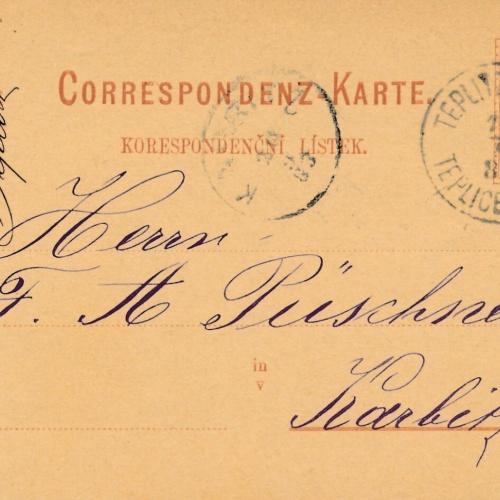 CORRESPONDENZ-KARTE.
KORESPONDENČNÍ LÍSTEK.
TEPLIT
TEPLICE
Herrn
F. A Püschne
in
v
Karbit